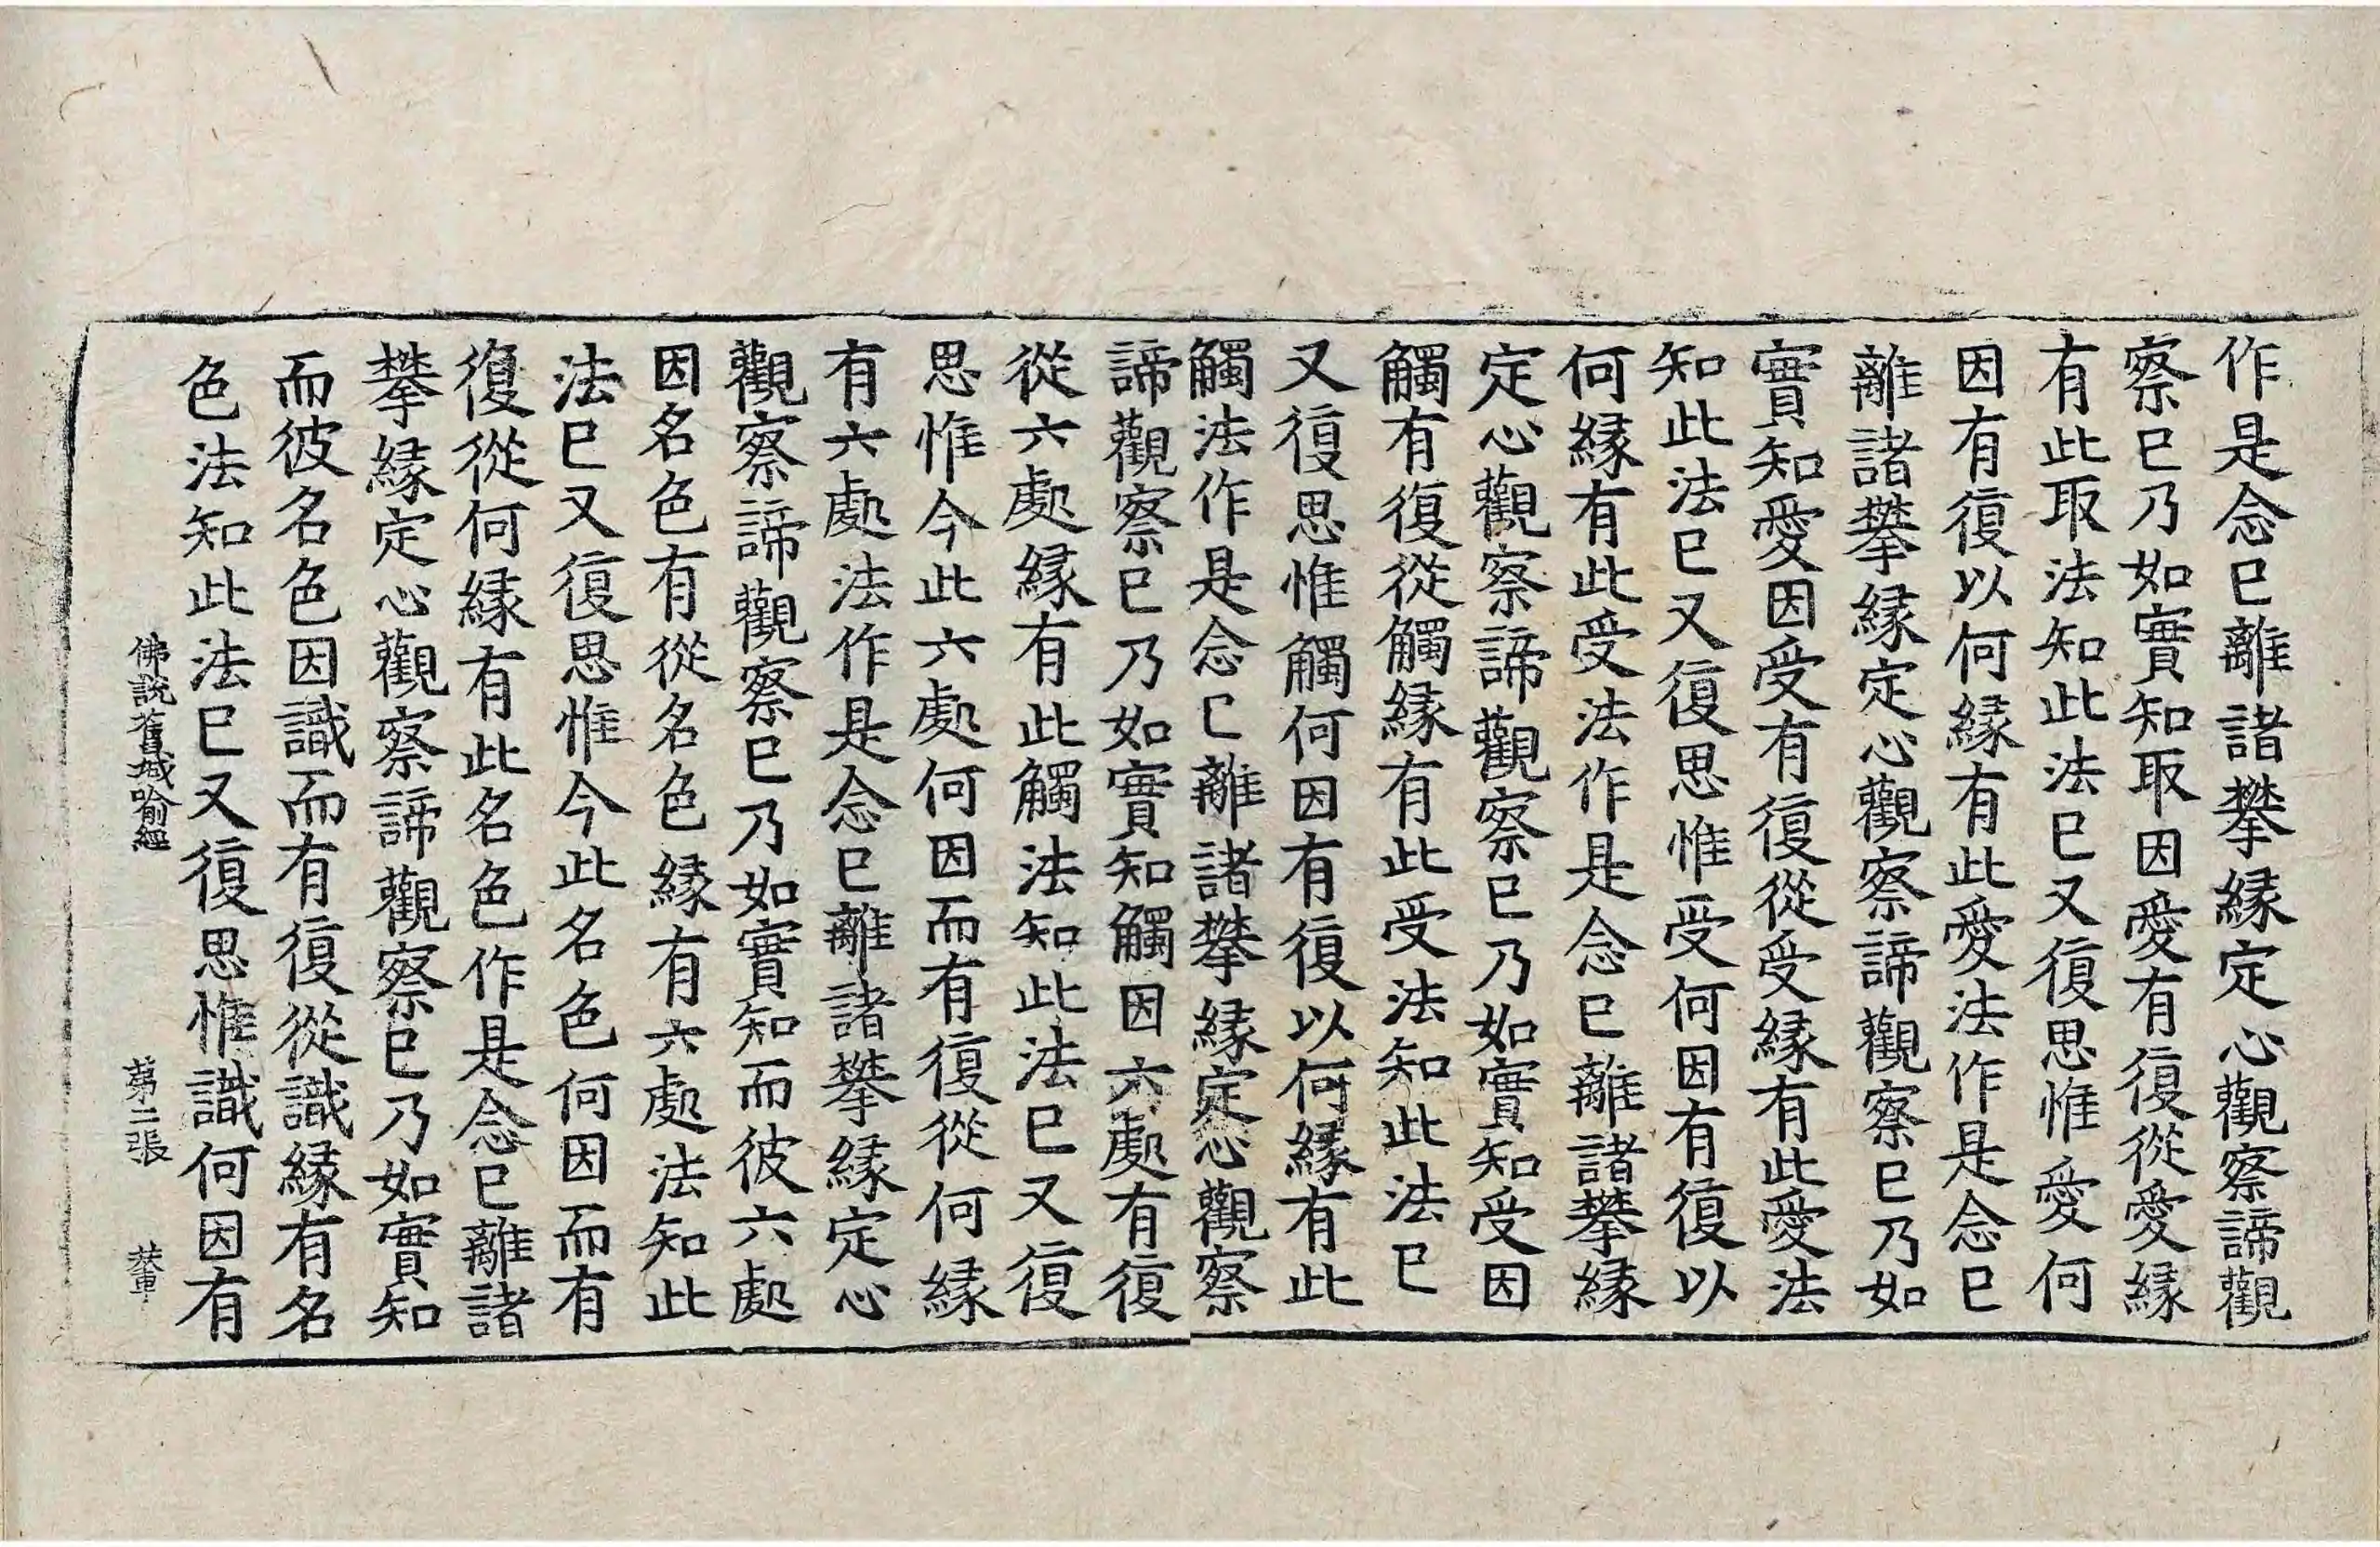 作是念已離諸攀縁定心觀察諦觀
察已乃如實知取因愛有復從愛縁
有此取法知此法已又復思惟愛何
因有復以何縁有此愛法作是念已
離諸攀縁定心觀察諦觀察已乃如
實知愛因受有復從受縁有此愛法
知此法已又復思惟受何因有復以
何縁有此受法作是念已離諸攀縁
定心觀察諦觀察已乃如實知受因
觸有復從觸縁有此受法知此法已
又復思惟觸何因有復以何縁有此
觸法作是念已離諸攀縁定心觀察
諦觀察已乃如實知觸因六處有復
從六處縁有此觸法知此法已又復
思惟今此六處何因而有復從何縁
有六處法作是念已離諸攀縁定心
觀察諦觀察已乃如實知而彼六處
因名色有從名色縁有六處法知此
法已又復思惟今此名色何因而有
復從何縁有此名色作是念已離諸
攀縁定心觀察諦觀察已乃如實知
而彼名色因識而有復從識縁有名
色法知此法已又復思惟識何因有
佛說舊城喻經 第二張